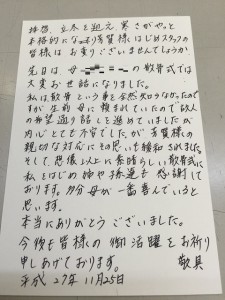 拝啓、立冬を迎え寒さがやっと
本格的になって参り皆様はじめスタッフの
皆様はお変りございませんでしょうか
先日は母 の散骨式では
大変お世話になりました。
私は散骨という事を全然知らなかったので
すが生前母に頼まれていたので故人
の希望通り話しを進めていましたが
内心とても不安でしたが皆様の
親切な対応にその思いも緩和されました
そして、想像以上に素晴らしい散骨式に
私をはじめ姉や孫達も感謝して
おります。多分母が一番喜んでいると
思います。
本当にありがとうございました。
今後も皆様の御活躍をお祈り
申しあげております。 敬具
平成27年11月25日